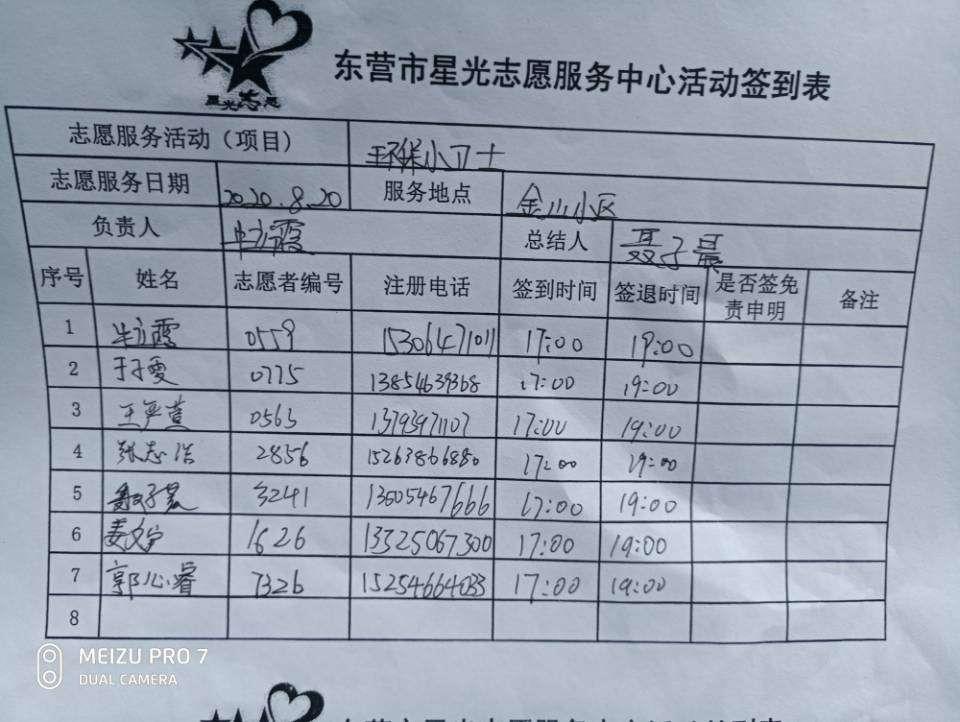 星光志愿
东营市星光志愿服务中心活动签到表
志愿服务活动（项目） 环保小卫士
志愿服务日期 2020.8.20 服务地点 金川小区
负责人 牛立霞 总结人 聂子晨
序号 姓名 志愿者编号 注册电话 签到时间 签退时间 是否签免责申明 备注
1 牛立霞 0559 15306471011 17:00 19:00
2 于子雯 0775 13854639368 17:00 19:00
3 王 0563 13793971107 17:00 19:00
4 张志浩 2856 15263866880 17:00 19:00
5 聂子晨 3241 13605467666 17:00 19:00
6 姜 1626 13325067300 17:00 19:00
7 郭心睿 7326 15254664033 17:00 19:00
8
MEIZU PRO 7
DUAL CAMERA
东营市星光志愿服务中心活动签到表